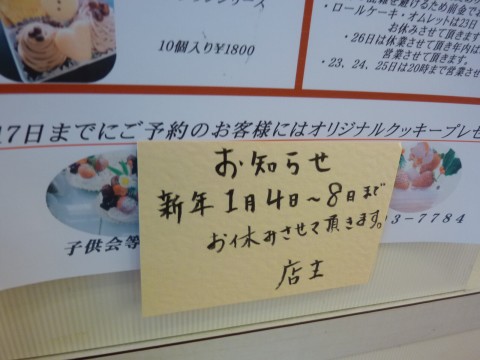 10個入り¥1800
・ロールケーキ・オムレットは23日
お休みさせて頂きます
・26日は休業させて頂き年内は
営業させて頂きます。
・23、24、25日は20時まで営業させ
7日までにご予約のお客様にはオリジナルクッキープレゼ
お知らせ
新年1月4日～8日まで
お休みさせて頂きます。
店主
子供会等
3-7784